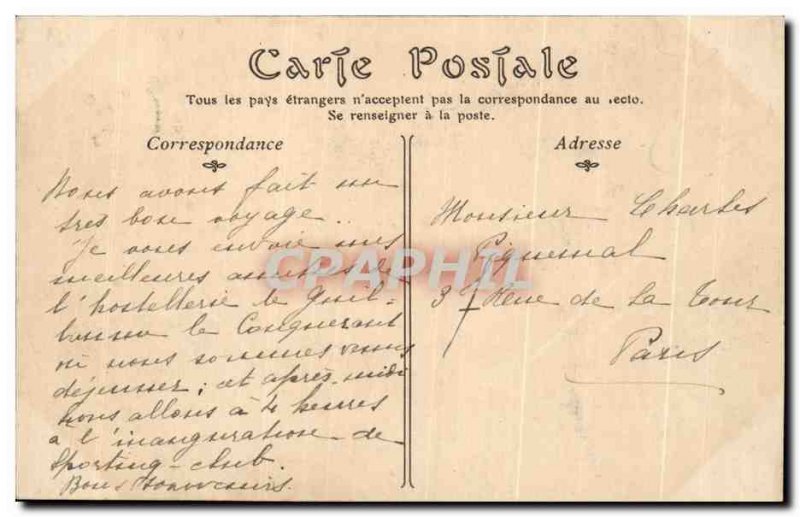 Carte Postale
Tous les pays étrangers n'acceptent pas la correspondance au recto.
Se renseigner à la poste.
Correspondance
Nous avons fait un
très bon voyage..
Je vous envoie mes
meilleures amitiés de
l'hostellerie le Guil-
laume le Conquerant
où nous sommes venus
déjeuner; et après-midi
nous allons à 4 heures
à l'inauguration de
Sporting-club.
Bons souvenirs.
Adresse
Monsieur Charles
Piquemal
37 Rue de la Tour
Paris
CPAPHIL